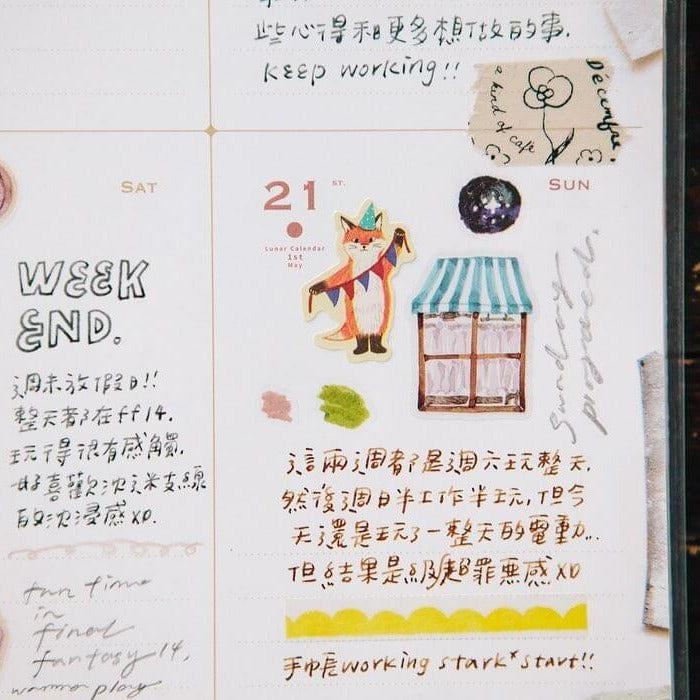 些心得和更多想做的事.
KEEP working!!
Décembre.
a kind of café
SAT
WEEK
END.
週末放假日!!
整天都在ff14.
玩得很有感觸.
好喜歡沈迷支線
的沈浸感XD.
fun time
in
final
fantasy 14,
21 ST.
Lunar Calendar
1st
May
SUN
Sunday
這兩週都是週六玩整天.
然後週日半工作半玩,但今
天還是玩了一整天的電動...
但結果是級超罪惡感XD
手帳working stark*start!!